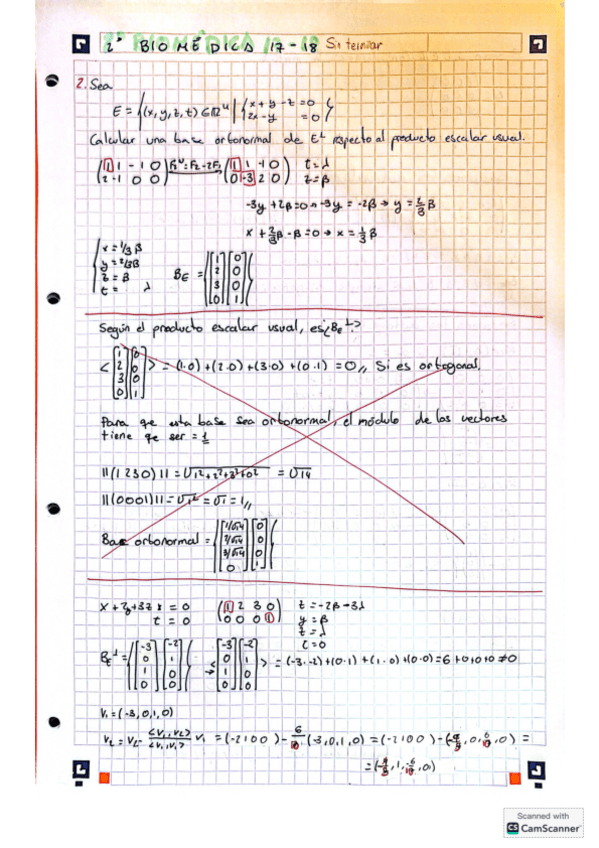 2º BIOMÉDICA 17-18 Sin terminar
2. Sea
E = {(x,y,z,t) ∈ R⁴ | x + y - z = 0
2x - y = 0}
Calcular una base ortonormal de E⊥ respecto al producto escalar usual.
(1 1 -1 0 F₂ᴺ = F₂ - 2F₁ (1 1 -1 0) t = λ
2 -1 0 0) (0 -3 2 0) z = β
-3y + 2β = 0 → -3y = -2β → y = 2/3 β
x + 2/3 β - β = 0 → x = 1/3 β
x = 1/3 β
y = 2/3 β
z = β
t = λ
B_E = {[1 2 3 0] [0 0 0 1]}
Según el producto escalar usual, es ¿B_E⊥?
< [1 2 3 0] [0 0 0 1] > = (1·0) + (2·0) + (3·0) + (0·1) = 0 // Si es ortogonal.
Para que esta base sea ortonormal, el módulo de los vectores
tiene que ser = 1
||(1 2 3 0)|| = √1²+2²+3²+0² = √14
||(0 0 0 1)|| = √1² = √1 = 1 //
Base ortonormal = {[1/√14 2/√14 3/√14 0] [0 0 0 1]}
x + 2y + 3z = 0 (1 2 3 0 x = -2β - 3λ
t = 0 0 0 0 1) y = β
z = λ
t = 0
B_E⊥ = {[-3 0 1 0] [-2 1 0 0]} < [-3 0 1 0] [-2 1 0 0] > = (-3·-2) + (0·1) + (1·0) + (0·0) = 6 + 0 + 0 + 0 ≠ 0
V₁ = (-3, 0, 1, 0)
V₂ = V₂ - <V₁,V₂>/<V₁,V₁> V₁ = (-2 1 0 0) - 6/10 (-3, 0, 1, 0) = (-2 1 0 0) - (-9/5, 0, 6/10, 0) =
Scanned with
CS CamScanner